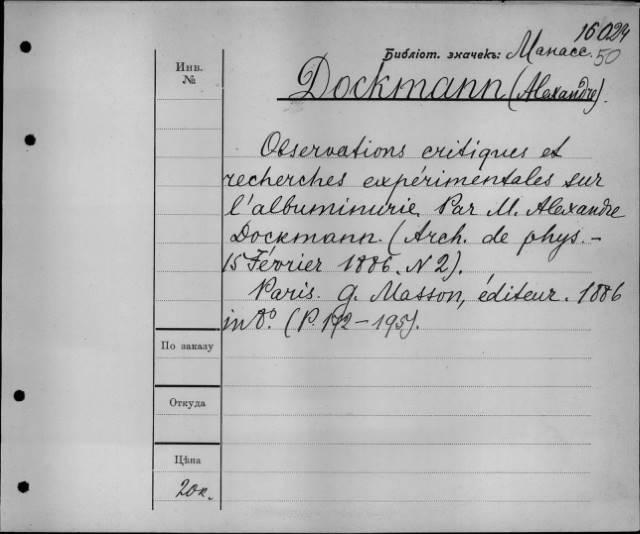 16024
Библіот. значекъ: Манасс. 50
Инв.
№
Dockmann (Alexandre).
Observations critiques et
recherches expérimentales sur
l'albuminurie. Par M. Alexandre
Dockmann. (Arch. de phys. –
15 Février 1886. N 2).
Paris. G. Masson, éditeur. 1886
in 8º. (P. 172–195).
По заказу
Откуда
Цѣна
20 к.